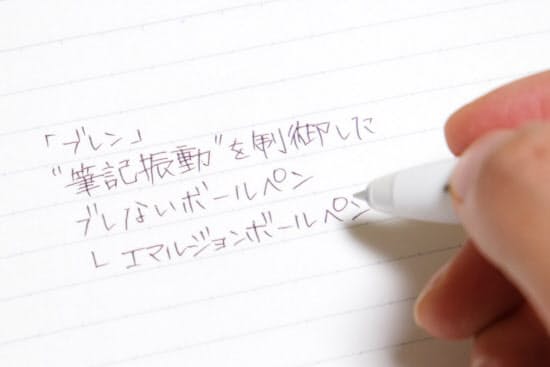 「ブレン」
"筆記振動"を制御した
ブレないボールペン
└ エマルジョンボールペン